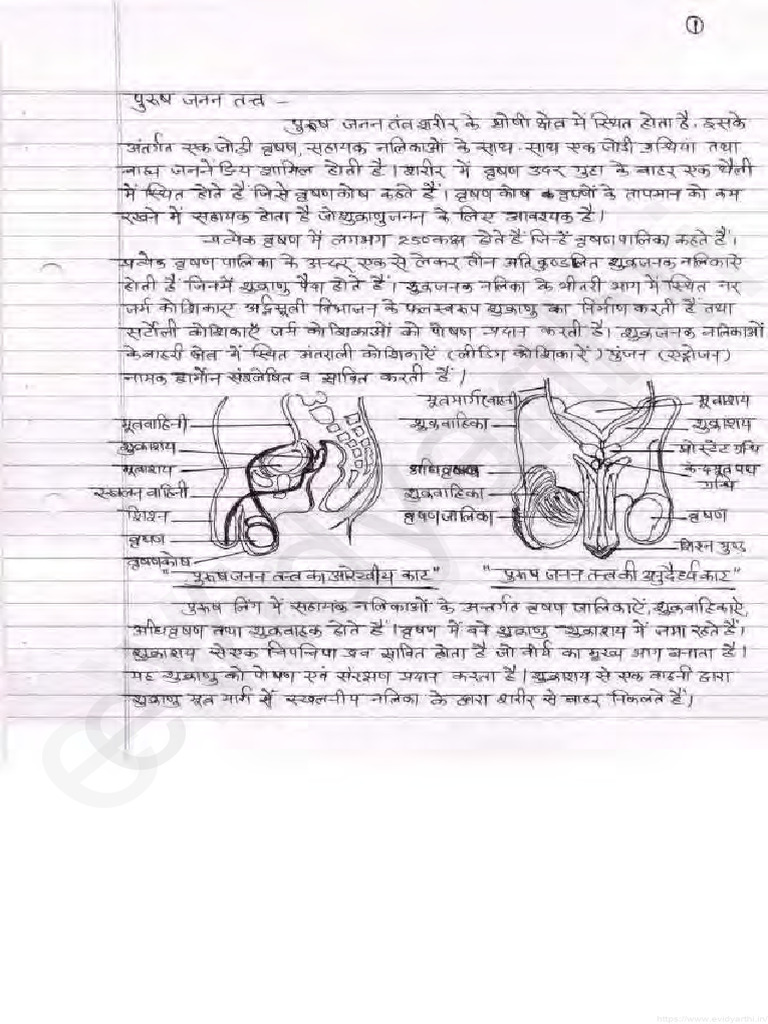 ①
पुरूष जनन तन्त्र –
पुरूष जनन तंत्र शरीर के श्रोणी क्षेत्र में स्थित होता है, इसके
अंतर्गत एक जोडी वृषण, सहायक नलिकाओं के साथ-साथ एक जोडी ग्रंथिया तथा
बाह्य जननेन्द्रिय शामिल होती है। शरीर में वृषण उदर गुहा के बाहर एक थैली
में स्थित होते हैं जिसे वृषणकोष कहते हैं। वृषण कोष वृषणों के तापमान को कम
रखने में सहायक होता है जो शुक्राणुजनन के लिए आवश्यक है।
प्रत्येक वृषण में लगभग 250 कक्ष होते हैं जिन्हें वृषण पालिका कहते हैं।
प्रत्येक वृषण पालिका के अन्दर एक से लेकर तीन अति कुण्डलित शुक्रजनक नलिकाऐ
होती हैं जिनमें शुक्राणु पैदा होते हैं। शुक्रजनक नलिका के भीतरी भाग में स्थित नर
जर्म कोशिकाए अर्द्धसूत्री विभाजन के फलस्वरूप शुक्राणु का निर्माण करती हैं तथा
सर्टोली कोशिकाएँ जर्म कोशिकाओं को पोषण प्रदान करती है। शुक्रजनक नलिकाओं
के बाहरी क्षेत्र में स्थित अंतराली कोशिकाऐं (लीडिग कोशिकाऐं)
नामक हार्मोन संश्लेषित व स्रावित करती हैं।
मूत्रवाहिनी
शुक्राशय
मूत्राशय
स्खलन वाहिनी
शिश्न
वृषण
वृषणकोष
"पुरूष जनन तन्त्र का आरेखीय काट"
शुक्रवाहिका
अधिवृषण
शुक्रवाहिका
वृषण जालिका
मूत्राशय
शुक्राशय
प्रोस्टेट ग्रंथि
ग्रंथि
वृषण
शिश्न मुण्ड
"पुरूष जनन तन्त्र की अनुदैर्ध्य काट"
पुरूष लिंग में सहायक नलिकाओं के अन्तर्गत वृषण जालिकाऐं, शुक्रवाहिकाऐं,
अधिवृषण तथा शुक्रवाहक होते हैं। वृषण में बने शुक्राणु शुक्राशय में जमा रहते हैं।
शुक्राशय से एक चिपचिपा द्रव स्रावित होता है जो वीर्य का मुख्य भाग बनाता है।
यह शुक्राणु को पोषण एवं संरक्षण प्रदान करता है। शुक्राशय से एक वाहनी द्वारा
शुक्राणु मूत्र मार्ग में स्खलनीय नलिका के द्वारा शरीर से बाहर निकलते हैं।
evidyarthi
https://www.evidyarthi.in/